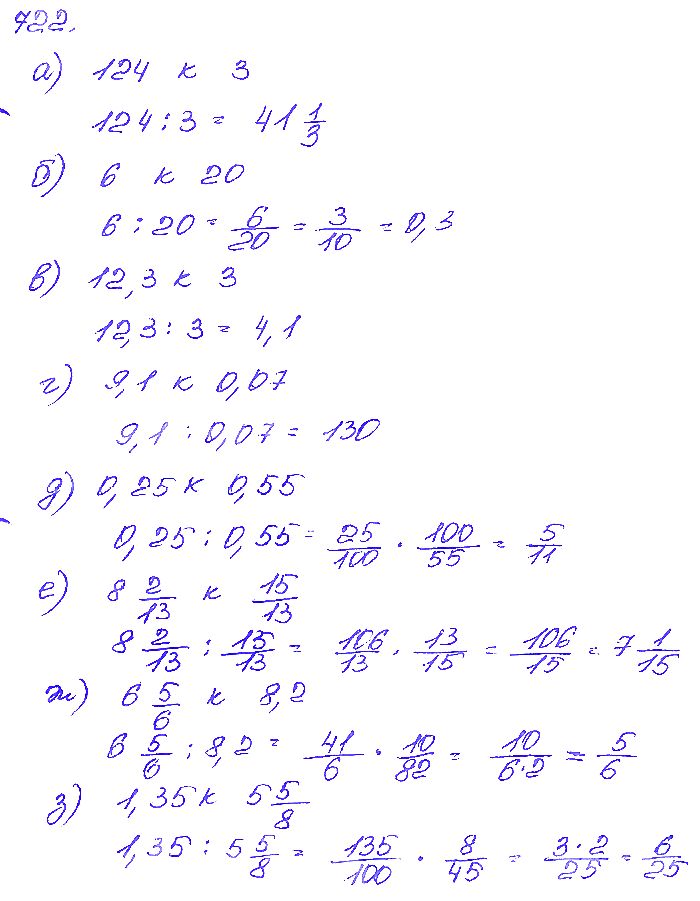 722.
а) 124 к 3
124 : 3 = 41 1/3
б) 6 к 20
6 : 20 = 6/20 = 3/10 = 0,3
в) 12,3 к 3
12,3 : 3 = 4,1
г) 9,1 к 0,07
9,1 : 0,07 = 130
д) 0,25 к 0,55
0,25 : 0,55 = 25/100 · 100/55 = 5/11
е) 8 2/13 к 15/13
8 2/13 : 15/13 = 106/13 · 13/15 = 106/15 = 7 1/15
ж) 6 5/6 к 8,2
6 5/6 : 8,2 = 41/6 · 10/82 = 10/6·2 = 5/6
з) 1,35 к 5 5/8
1,35 : 5 5/8 = 135/100 · 8/45 = 3·2/25 = 6/25